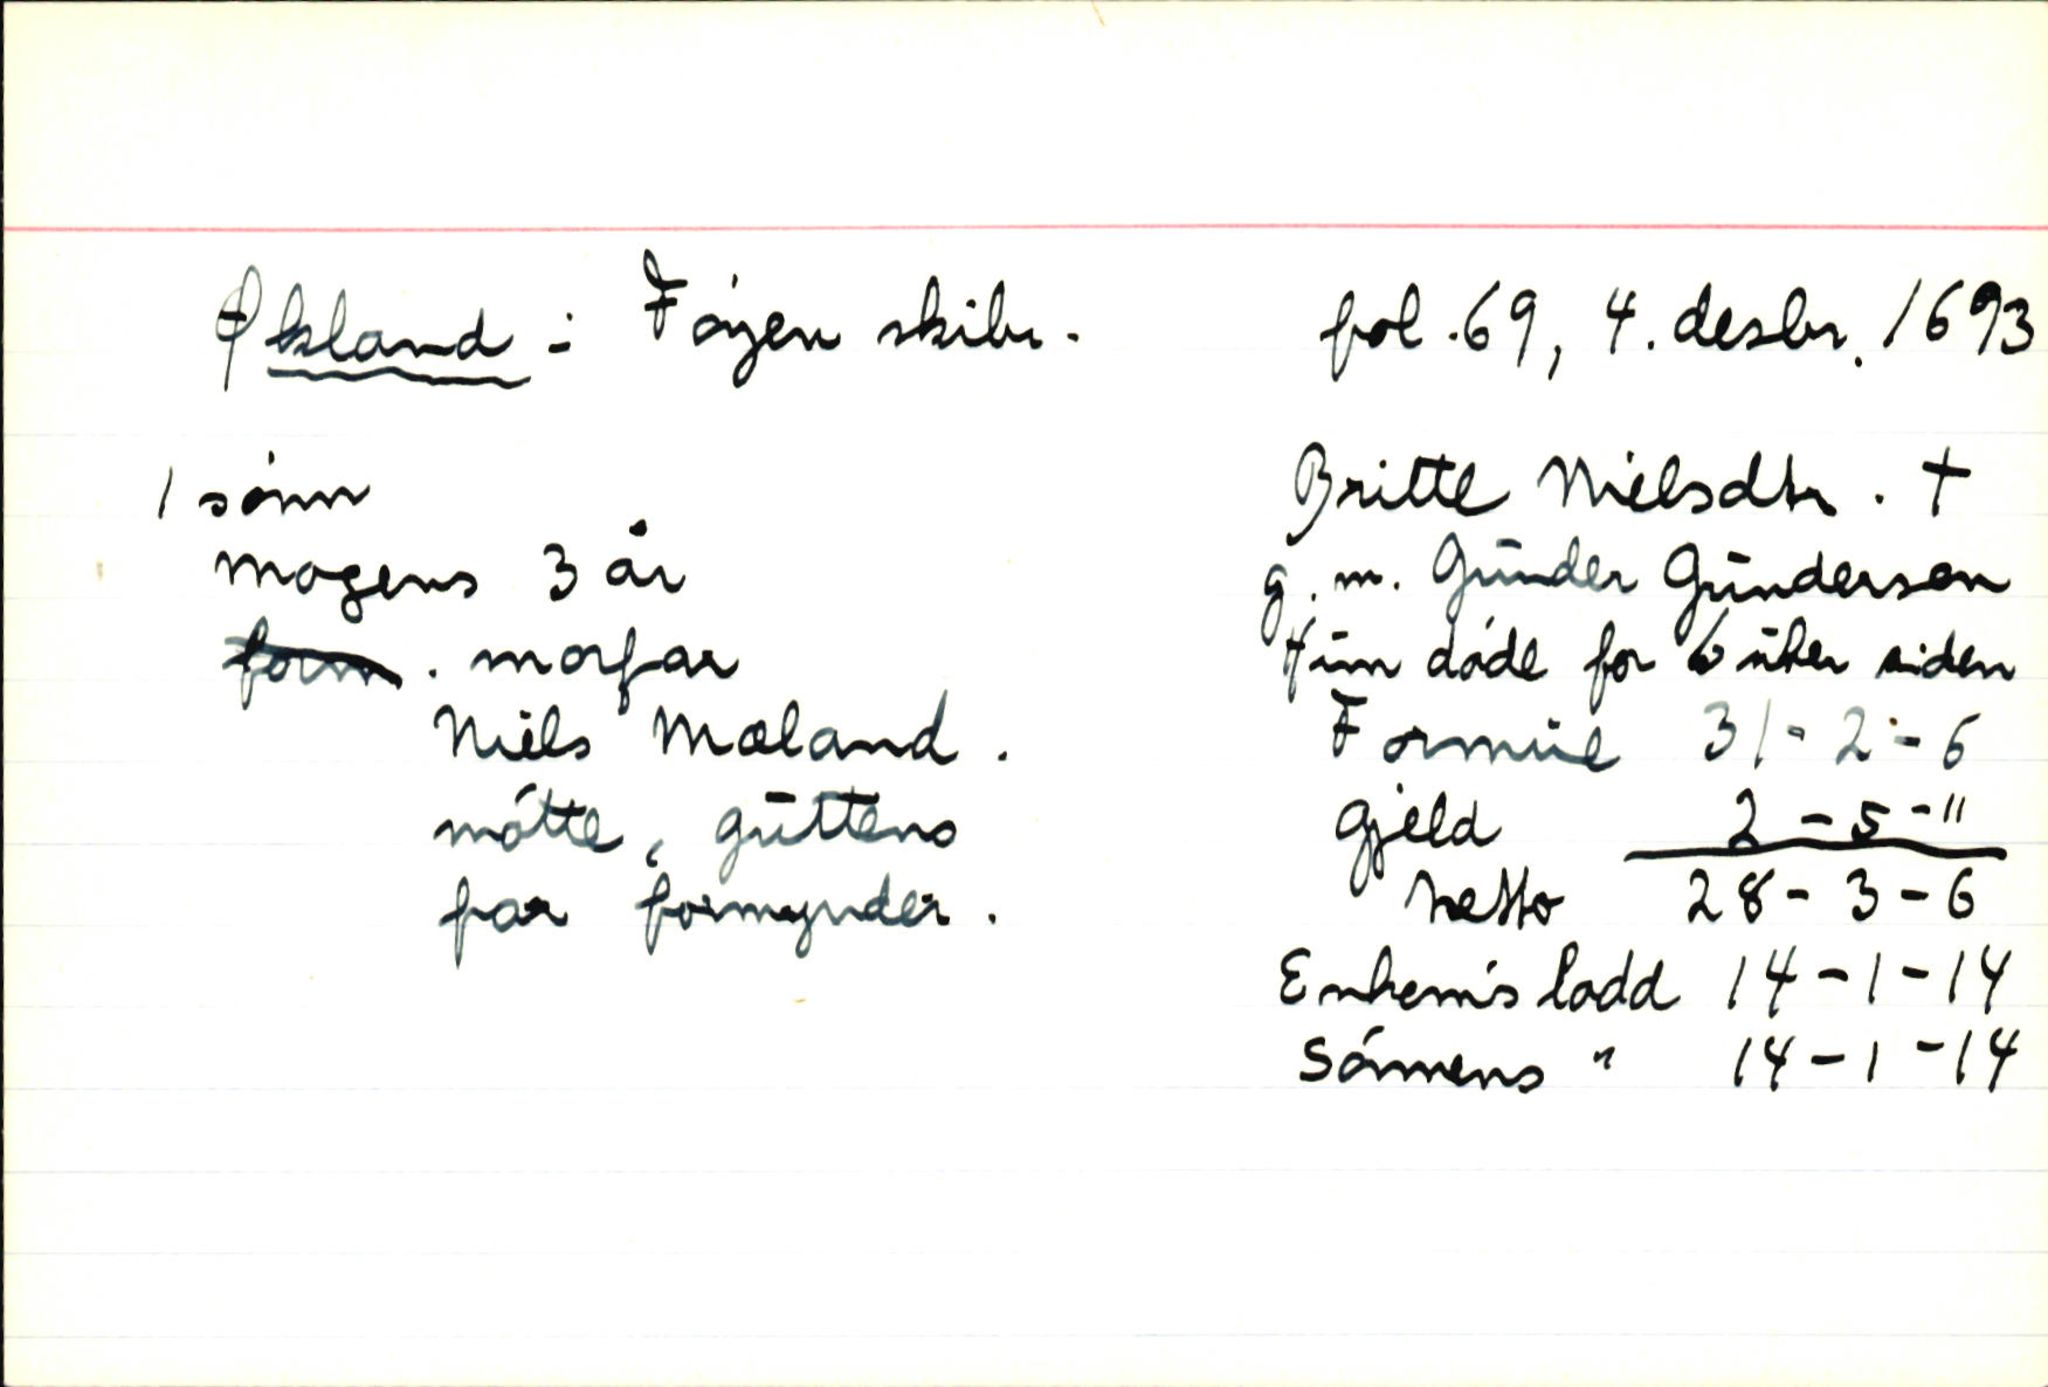 Økland i Føyen skibr. fol. 69, 4. desbr. 1693
1 sønn
Mogens 3 år
form. morfar
Niels Mæland.
møtte, guttens
far formynder.
Britte Nielsdtr. †
g. m. Gunder Gundersen
Hun døde for 6 uker siden
Formue 31 - 2 - 6
Gjeld 2 - 5 - "
Netto 28 - 3 - 6
Enkem's lodd 14 - 1 - 14
Sønnens " 14 - 1 - 14